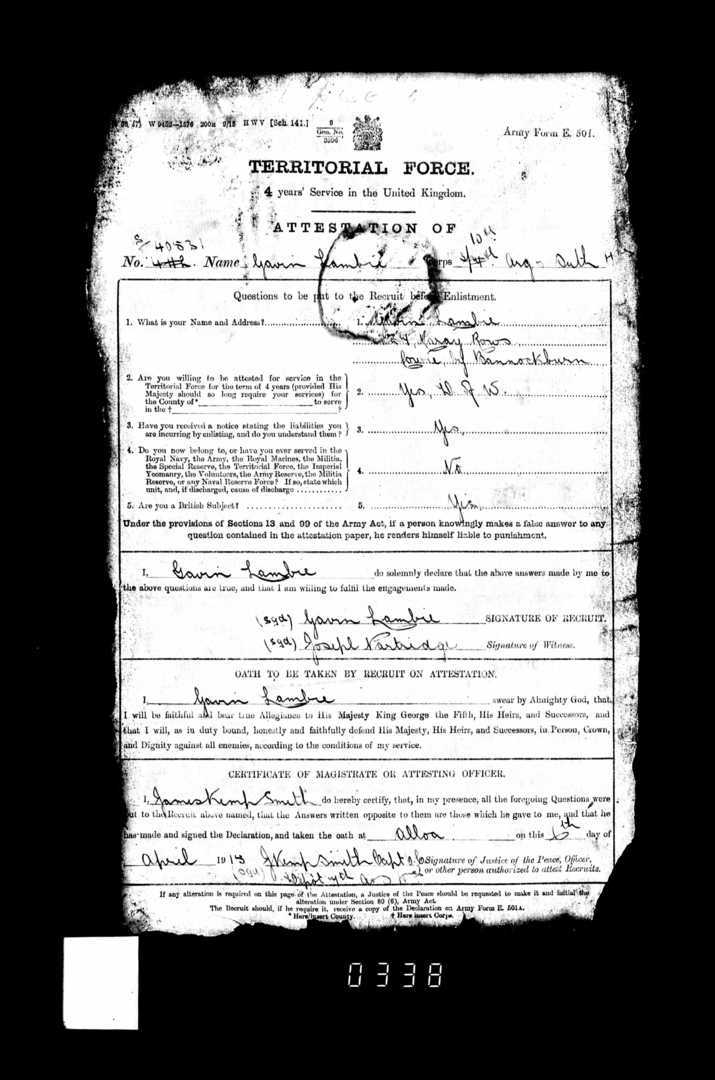 W 9452—1376 200m 9/15 H W V [Sch. 141.] 6
Gen. No.
Army Form E. 501.
TERRITORIAL FORCE.
4 years' Service in the United Kingdom.
ATTESTATION OF
10th
No. Name Gavin Lambie Corps Arg Suth H
Questions to be put to the Recruit before Enlistment.
1. What is your Name and Address? 1. Gavin Lambie
Rows
Cowie, by Bannockburn
2. Are you willing to be attested for service in the
Territorial Force for the term of 4 years (provided His
Majesty should so long require your services) for
the County of* to serve
in the † ?
2. Yes, D of W.
3. Have you received a notice stating the liabilities you
are incurring by enlisting, and do you understand them?
3. Yes,
4. Do you now belong to, or have you ever served in the
Royal Navy, the Army, the Royal Marines, the Militia,
the Special Reserve, the Territorial Force, the Imperial
Yeomanry, the Volunteers, the Army Reserve, the Militia
Reserve, or any Naval Reserve Force? If so, state which
unit, and, if discharged, cause of discharge
4. No
5. Are you a British Subject? 5. Yes,
Under the provisions of Sections 13 and 99 of the Army Act, if a person knowingly makes a false answer to any
question contained in the attestation paper, he renders himself liable to punishment.
I, Gavin Lambie do solemnly declare that the above answers made by me to
the above questions are true, and that I am willing to fulfil the engagements made.
(sgd) Gavin Lambie SIGNATURE OF RECRUIT.
(sgd) Joseph Partridge Signature of Witness.
OATH TO BE TAKEN BY RECRUIT ON ATTESTATION.
I, Gavin Lambie swear by Almighty God, that
I will be faithful and bear true Allegiance to His Majesty King George the Fifth, His Heirs, and Successors, and
that I will, as in duty bound, honestly and faithfully defend His Majesty, His Heirs, and Successors, in Person, Crown,
and Dignity against all enemies, according to the conditions of my service.
CERTIFICATE OF MAGISTRATE OR ATTESTING OFFICER.
I, James Kemp Smith do hereby certify, that, in my presence, all the foregoing Questions were
put to the Recruit above named, that the Answers written opposite to them are those which he gave to me, and that he
has made and signed the Declaration, and taken the oath at Alloa on this 6th day of
April 191 J Kemp Smith Capt Signature of Justice of the Peace, Officer,
(sgd) or other person authorized to attest Recruits.
If any alteration is required on this page of the Attestation, a Justice of the Peace should be requested to make it and initial the
alteration under Section 80 (6), Army Act.
The Recruit should, if he require it, receive a copy of the Declaration on Army Form E. 501A.
* Here insert County. † Here insert Corps.
0338